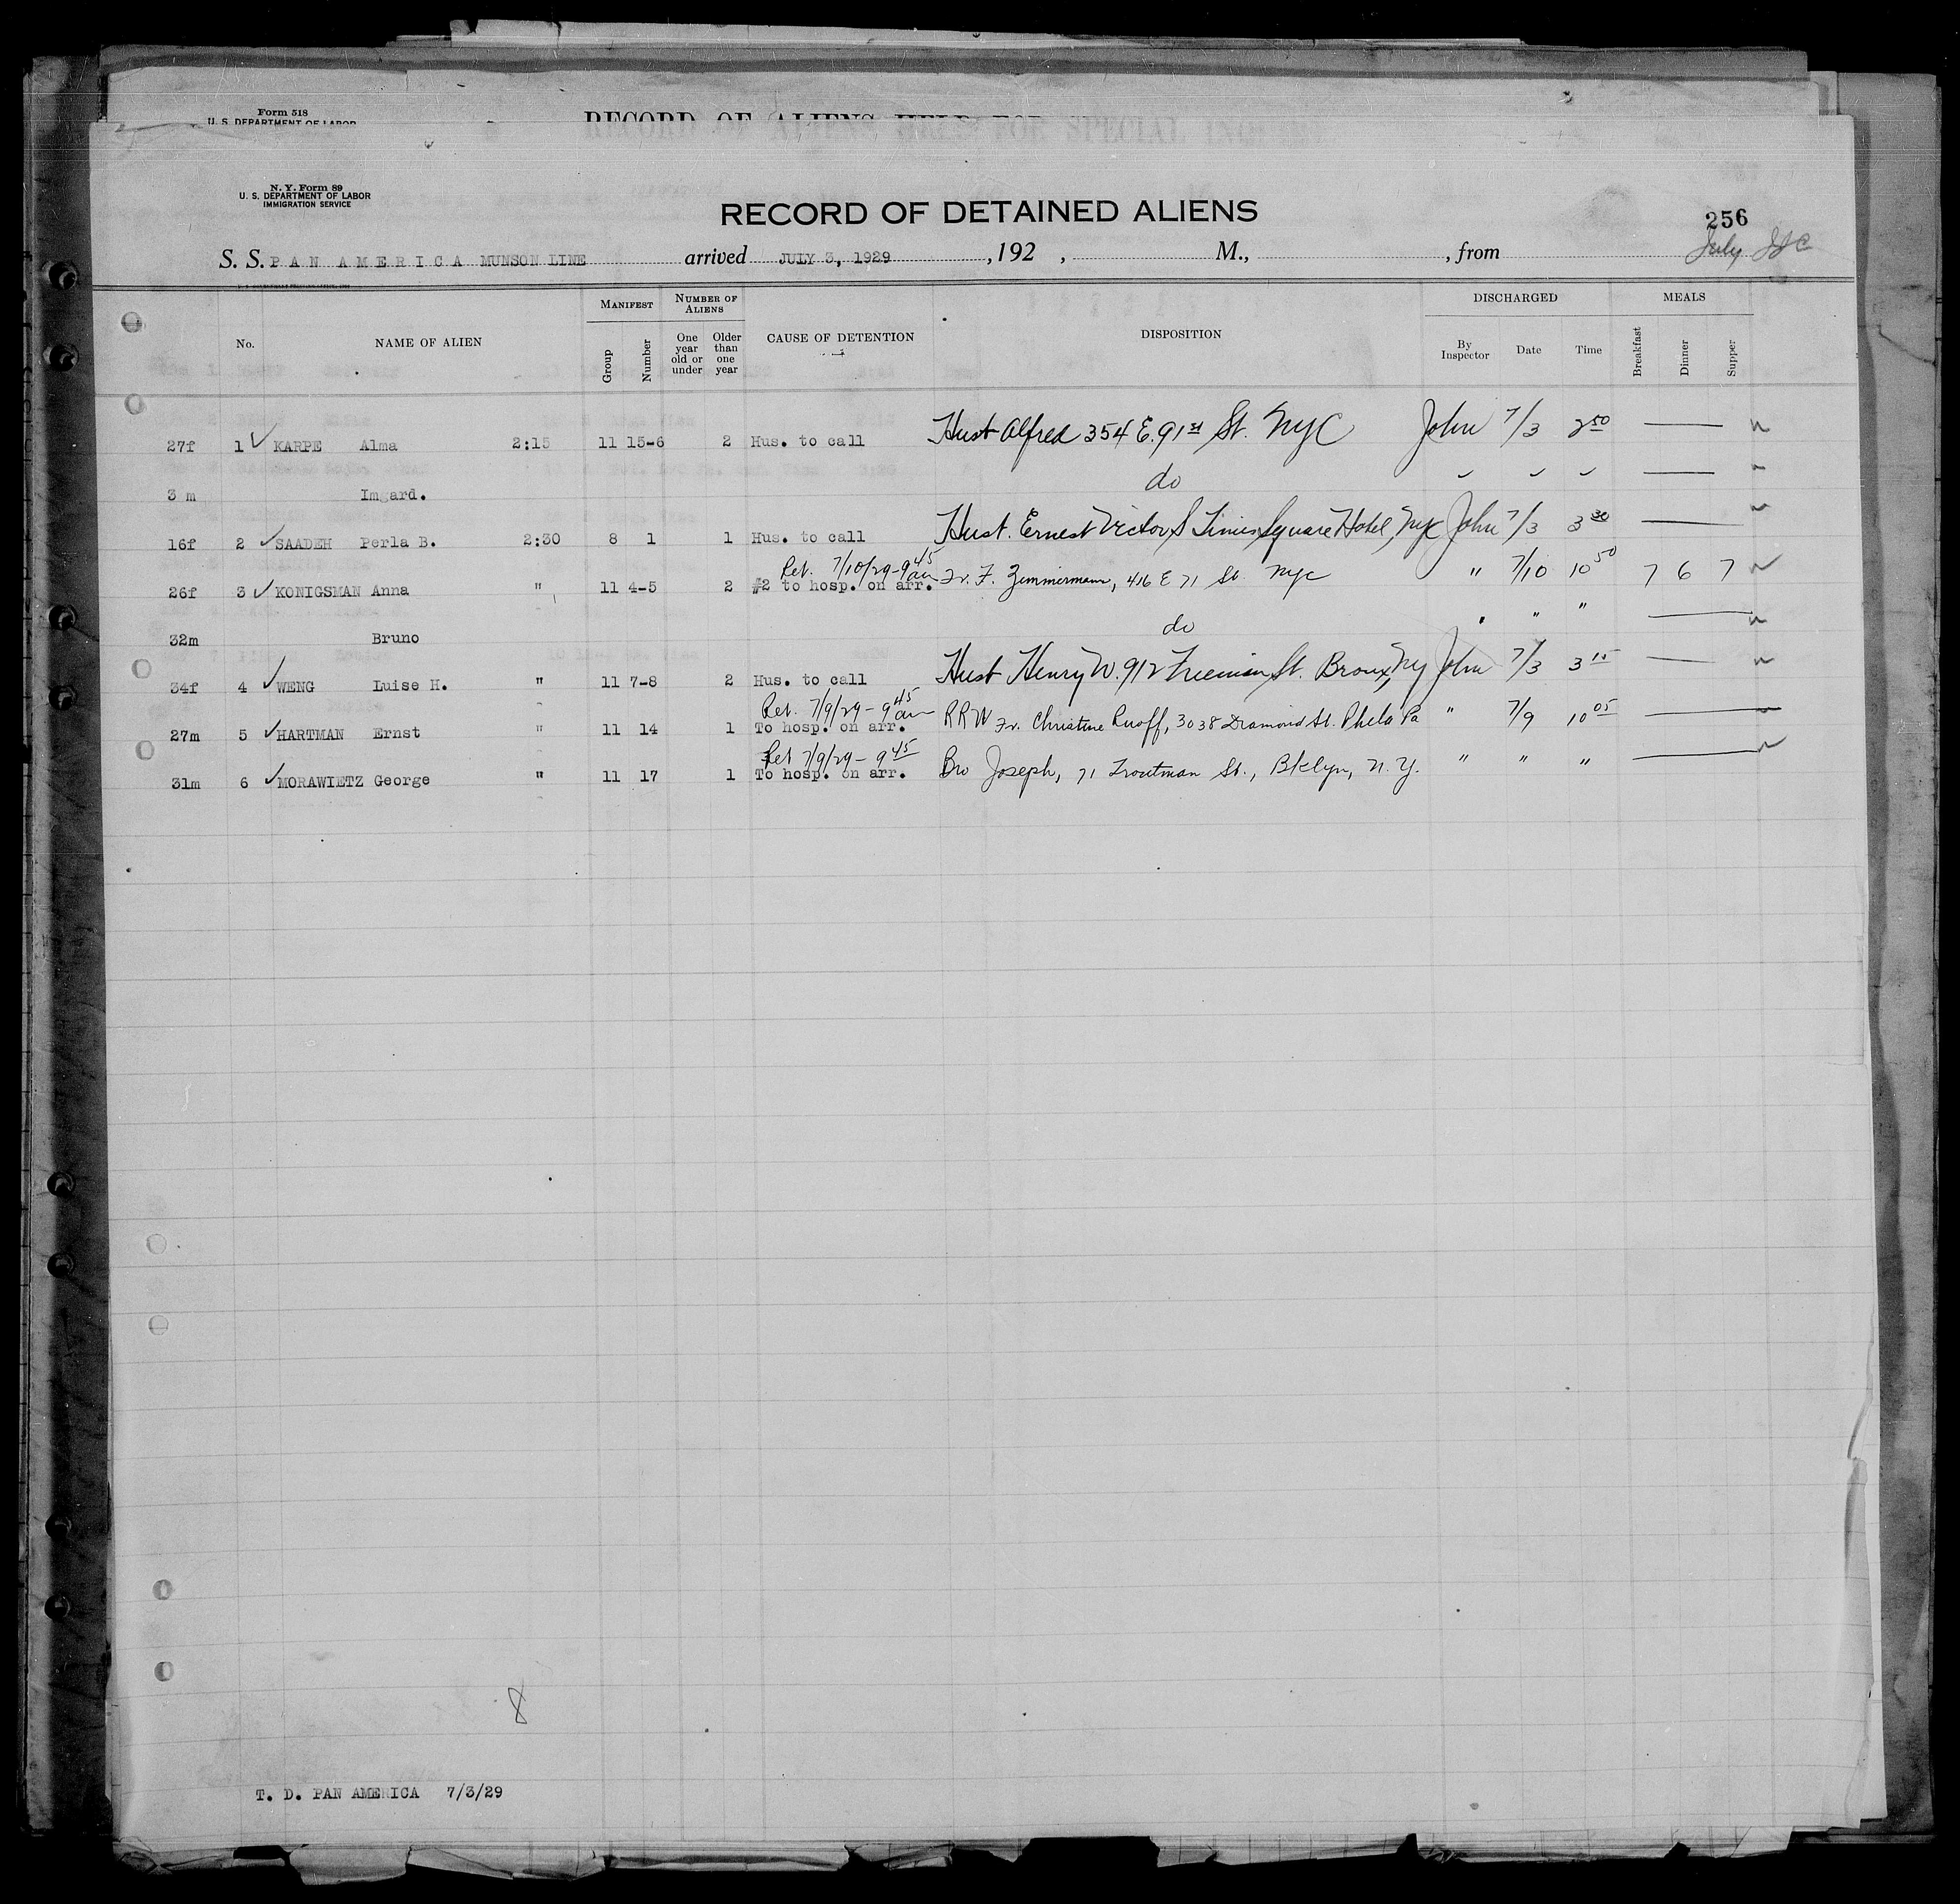 Form 518
U. S. DEPARTMENT OF LABOR
RECORD OF ALIENS HELD FOR SPECIAL INQUIRY
N. Y. Form 89
U. S. DEPARTMENT OF LABOR
IMMIGRATION SERVICE
RECORD OF DETAINED ALIENS
256
S. S. PAN AMERICA MUNSON LINE arrived JULY 3, 1929, 192 , M., , from July
No. NAME OF ALIEN MANIFEST Group Number NUMBER OF ALIENS One year old or under Older than one year CAUSE OF DETENTION DISPOSITION DISCHARGED By Inspector Date Time MEALS Breakfast Dinner Supper
27f 1 ✓ KARPE Alma 2:15 11 15-6 2 Hus. to call Hust Alfred 354 E. 91st St. NYC John 7/3 2 50 —
3 m Imgard. do ✓ ✓ ✓ —
16f 2 ✓ SAADEH Perla B. 2:30 8 1 1 Hus. to call Hust. Ernest Victor S Times Square Hotel, NYC John 7/3 3 30 —
Ret. 7/10/29 - 9 45 am
26f 3 ✓ KONIGSMAN Anna " 11 4-5 2 #2 to hosp. on arr. Fr. F. Zimmermann, 416 E 71 St. NYC " 7/10 10 50 7 6 7
32m Bruno do " " " —
34f 4 ✓ WENG Luise H. " 11 7-8 2 Hus. to call Hust Henry W. 912 Freeman St. Bronx, NY John 7/3 3 15 —
Ret. 7/9/29 - 9 45 am
27m 5 ✓ HARTMAN Ernst " 11 14 1 To hosp. on arr. RRW Fr. Christine Ruoff, 3038 Diamond St. Phila Pa " 7/9 10 05 —
Ret 7/9/29 - 9 45
31m 6 ✓ MORAWIETZ George " 11 17 1 To hosp. on arr. Bro Joseph, 71 Troutman St., Bklyn, N. Y. " " " —
8
T. D. PAN AMERICA 7/3/29